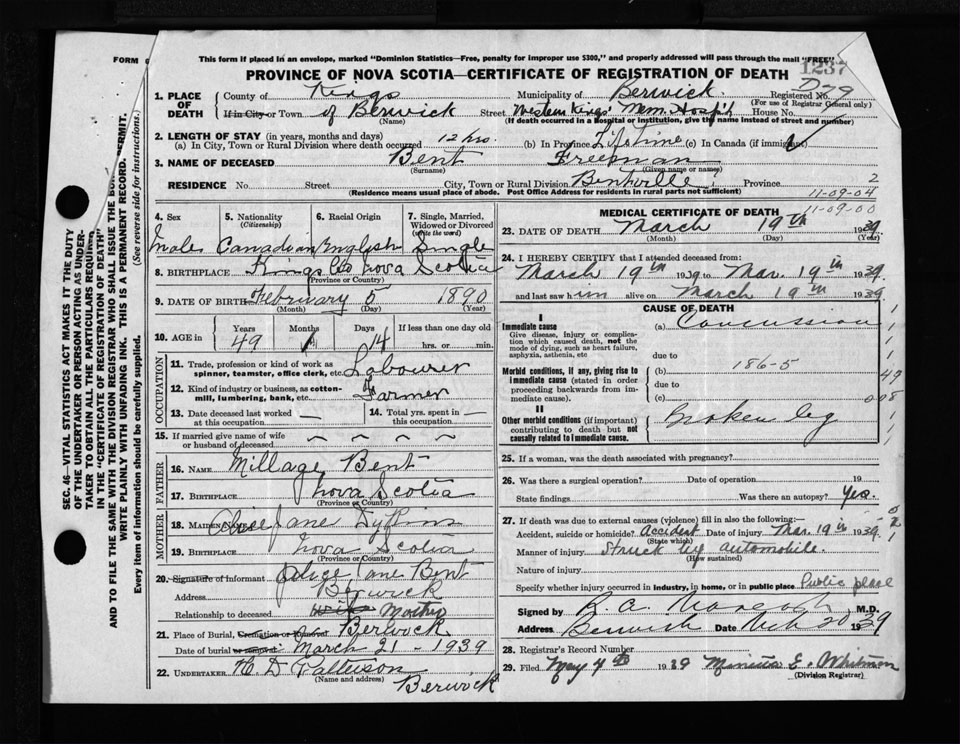 FORM 6 This form if placed in an envelope, marked "Dominion Statistics—Free, penalty for improper use $300," and properly addressed will pass through the mail "FREE"
1237
PROVINCE OF NOVA SCOTIA—CERTIFICATE OF REGISTRATION OF DEATH
1. PLACE OF DEATH County of Kings Municipality of Berwick Registered No. D79
(For use of Registrar General only)
If in City or Town of Berwick Street Western Kings' Mem. Hospit House No.
(Name) (If death occurred in a hospital or institution, give the name instead of street and number)
2. LENGTH OF STAY (in years, months and days)
(a) In City, Town or Rural Division where death occurred 12 hrs. (b) In Province Lifetime (c) In Canada (if immigrant)
3. NAME OF DECEASED Bent Freeman
(Surname) (Given name or names)
RESIDENCE No. Street City, Town or Rural Division Bentville Province 2
(Residence means usual place of abode. Post Office Address for residents in rural parts not sufficient)
11-09-04
11-09-00
4. Sex 5. Nationality (Citizenship) 6. Racial Origin 7. Single, Married, Widowed or Divorced (Write the word)
Male Canadian English Single
8. BIRTHPLACE Kings Co Nova Scotia
(Province or Country)
9. DATE OF BIRTH February 5 1890
(Month) (Day) (Year)
10. AGE in Years Months Days If less than one day old
49 1 14 hrs. or min.
OCCUPATION
11. Trade, profession or kind of work as spinner, teamster, office clerk, etc. Labourer
12. Kind of industry or business, as cotton-mill, lumbering, bank, etc. Farmer
13. Date deceased last worked at this occupation — 14. Total yrs. spent in this occupation —
15. If married give name of wife or husband of deceased ~ ~ ~ ~
FATHER
16. NAME Millage Bent
17. BIRTHPLACE Nova Scotia
(Province or Country)
MOTHER
18. MAIDEN NAME Jane
19. BIRTHPLACE Nova Scotia
(Province or Country)
20. Signature of informant Jane Bent
Address Berwick
Relationship to deceased Wife Mother
21. Place of Burial, Cremation or Removal Berwick
Date of burial March 21 - 1939
22. UNDERTAKER H D Patterson
(Name and address)
Berwick
MEDICAL CERTIFICATE OF DEATH
23. DATE OF DEATH March 19th 1939
(Month) (Day) (Year)
24. I HEREBY CERTIFY that I attended deceased from:
March 19th 1939 to Mar. 19th 1939.
and last saw him alive on March 19th 1939
CAUSE OF DEATH
I
Immediate cause (a) Concussion
Give disease, injury or complication which caused death, not the mode of dying, such as heart failure, asphyxia, asthenia, etc
due to
Morbid conditions, if any, giving rise to immediate cause (stated in order proceeding backwards from immediate cause).
(b) 186-5
due to
(c)
49
008
II
Other morbid conditions (if important) contributing to death but not causally related to immediate cause.
Broken leg
25. If a woman, was the death associated with pregnancy?
26. Was there a surgical operation? Date of operation 19
State findings Was there an autopsy? Yes.
27. If death was due to external causes (violence) fill in also the following:—
Accident, suicide or homicide? Accident Date of injury Mar. 19th 1939.
(State which)
Manner of injury Struck by automobile.
(How sustained)
Nature of injury
Specify whether injury occurred in industry, in home, or in public place Public place
Signed by R. A. M.D.
Address Berwick Date 20 1939
28. Registrar's Record Number
29. Filed May 4th 1939 E. Whitman
(Division Registrar)
SEC. 46—VITAL STATISTICS ACT MAKES IT THE DUTY
OF THE UNDERTAKER OR PERSON ACTING AS UNDER-
TAKER TO OBTAIN ALL THE PARTICULARS REQUIRED
IN THE "CERTIFICATE OF REGISTRATION OF DEATH"
AND TO FILE THE SAME WITH THE DIVISION REGISTRAR WHO SHALL ISSUE THE PERMIT.
WRITE PLAINLY WITH UNFADING INK. THIS IS A PERMANENT RECORD.
Every item of information should be carefully supplied. (See reverse side for instructions.)